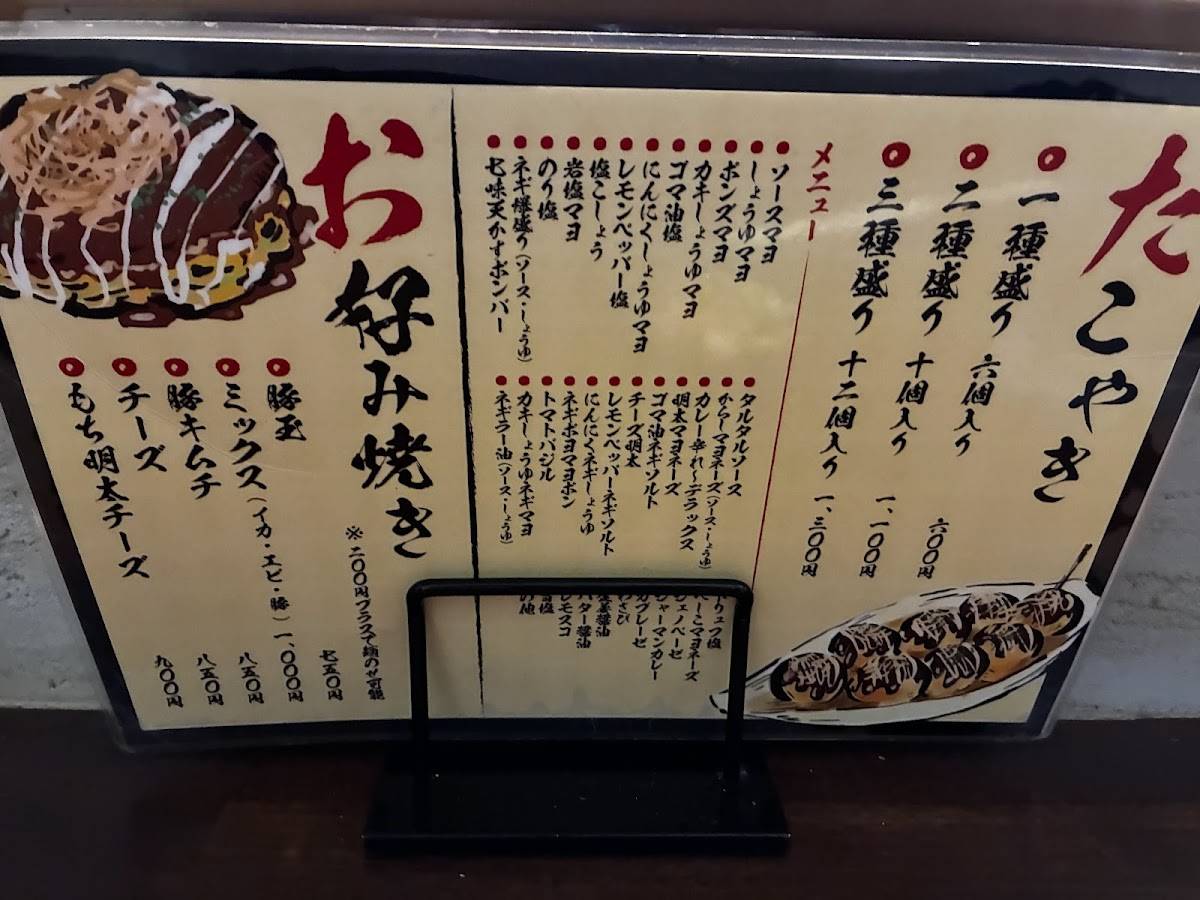 たこやき
一種盛り 六個入り 六〇〇円
二種盛り 十個入り 一、一〇〇円
三種盛り 十二個入り 一、三〇〇円
メニュー
ソースマヨ
しょうゆマヨ
ポンズマヨ
カキしょうゆマヨ
ゴマ油塩
にんにくしょうゆマヨ
レモンペッパー塩
塩こしょう
岩塩マヨ
のり塩
ネギ爆盛り(ソース・しょうゆ)
七味天かすポンバー
タルタルソース
から〜マヨネーズ(ソース・しょうゆ)
カレー辛れ〜デラックス
明太マヨネーズ
ゴマ油ネギソルト
チーズ明太
レモンペッパーネギソルト
にんにくネギしょうゆ
ネギポヨマヨポン
トマトバジル
カキしょうゆネギマヨ
ネギラー油(ソース・しょうゆ)
ジェノベーゼ
ジャーマンカレー
わさび
バター醤油
お好み焼き
※二〇〇円プラスで麺のせ可能
豚玉 七五〇円
ミックス(イカ・エビ・豚) 一、〇〇〇円
豚キムチ 八五〇円
チーズ 八五〇円
もち明太チーズ 九〇〇円